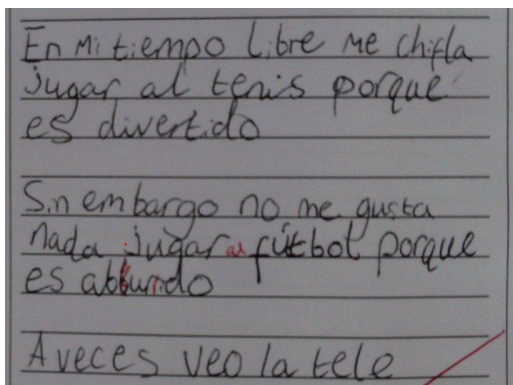 En mi tiempo libre me chifla
jugar al tenis porque
es divertido
Sin embargo no me gusta
nada jugar al fútbol porque
es aburrido
A veces veo la tele